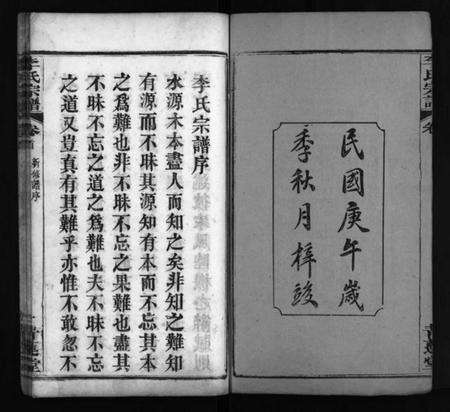 民國庚午歲
季秋月梓竣
李氏宗譜序
水源木本盡人而知之矣非知之難知
有源而不昧其源知有本而不忘其本
之為難也非不昧不忘之果難也盡其
不昧不忘之道之為難也夫不昧不忘
之道又豈真有其難乎亦惟不敢忽不
李氏宗譜
卷首
新修譜序
青蓮堂